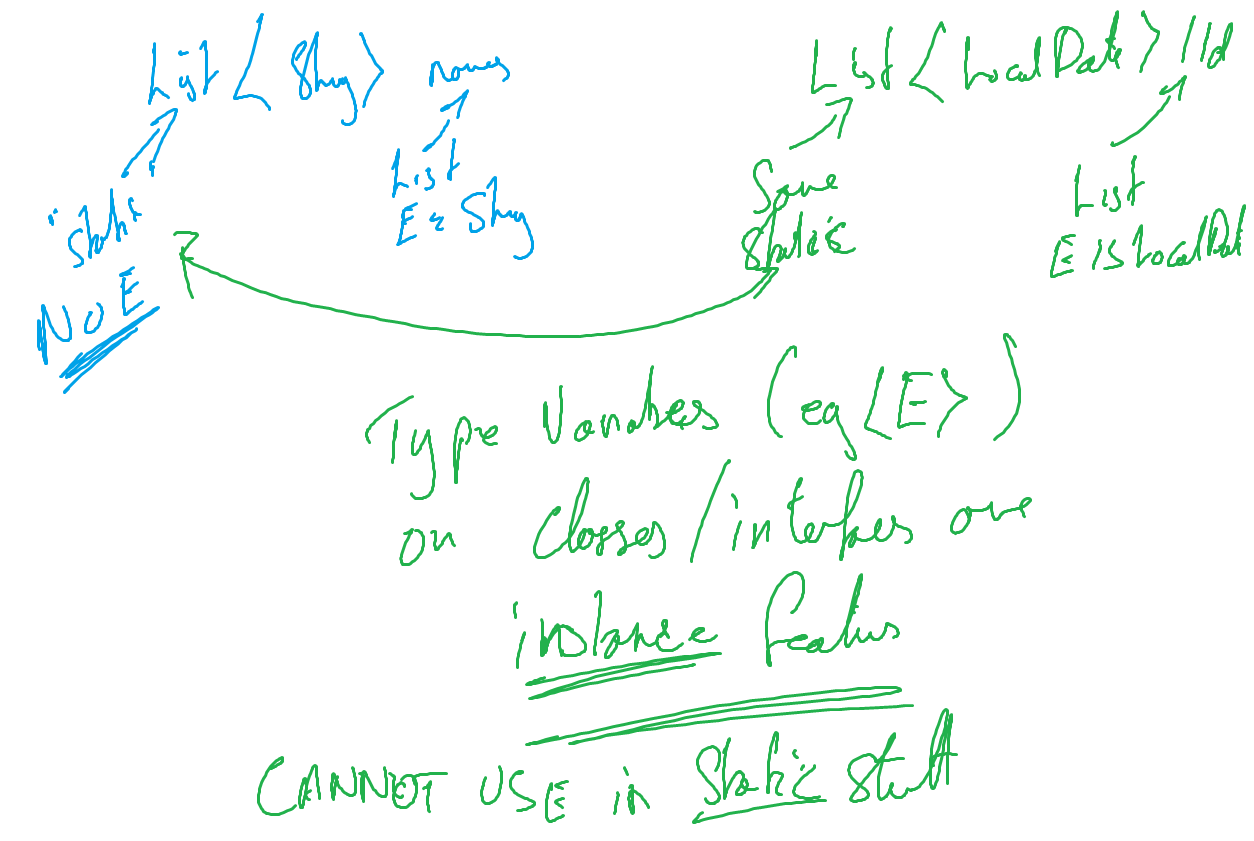 List <String> names
List <LocalDate> lld
"static"
NO E
List
E = String
Same
static
List
E is LocalDate
Type Variables (eg <E>)
on classes/interfaces are
instance features
CANNOT USE in static stuff